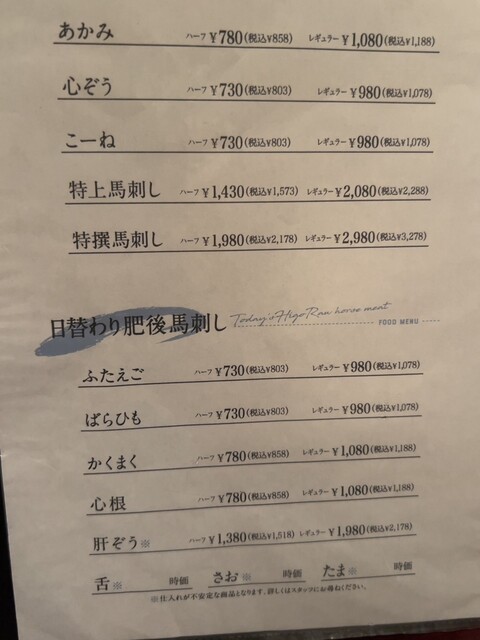 あかみ ハーフ ¥780(税込¥858) レギュラー ¥1,080(税込¥1,188)
心ぞう ハーフ ¥730(税込¥803) レギュラー ¥980(税込¥1,078)
こーね ハーフ ¥730(税込¥803) レギュラー ¥980(税込¥1,078)
特上馬刺し ハーフ ¥1,430(税込¥1,573) レギュラー ¥2,080(税込¥2,288)
特撰馬刺し ハーフ ¥1,980(税込¥2,178) レギュラー ¥2,980(税込¥3,278)
日替わり肥後馬刺し Today's Higo Raw horse meat
FOOD MENU
ふたえご ハーフ ¥730(税込¥803) レギュラー ¥980(税込¥1,078)
ばらひも ハーフ ¥730(税込¥803) レギュラー ¥980(税込¥1,078)
かくまく ハーフ ¥780(税込¥858) レギュラー ¥1,080(税込¥1,188)
心根 ハーフ ¥780(税込¥858) レギュラー ¥1,080(税込¥1,188)
肝ぞう※ ハーフ ¥1,380(税込¥1,518) レギュラー ¥1,980(税込¥2,178)
舌※ 時価 さお※ 時価 たま※ 時価
※仕入れが不安定な商品となります。詳しくはスタッフにお尋ねください。